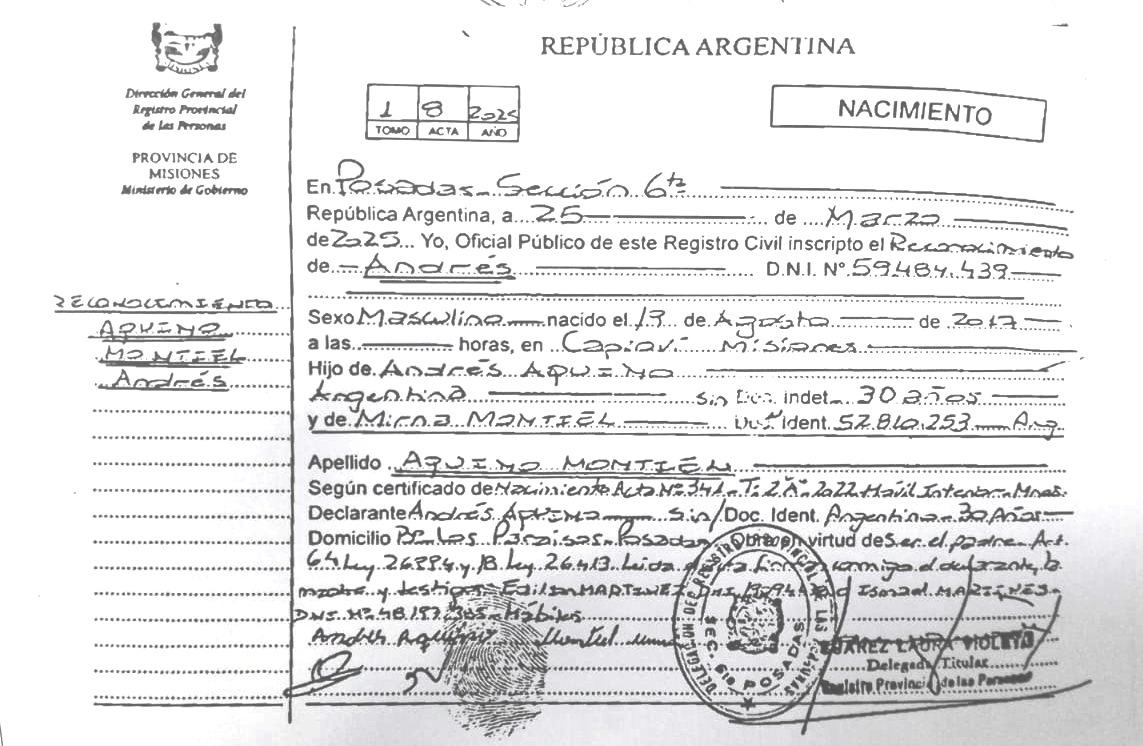 REPÚBLICA ARGENTINA
Dirección General del
Registro Provincial
de las Personas
PROVINCIA DE
MISIONES
Ministerio de Gobierno
1 8 2025
TOMO ACTA AÑO
NACIMIENTO
En Posadas - Sección 6ta
República Argentina, a 25 de Marzo
de 2025 Yo, Oficial Público de este Registro Civil inscripto el Reconocimiento
de Andrés D.N.I. N° 59.484.439
RECONOCIMIENTO
AQUINO
MONTIEL
Andrés
Sexo Masculino nacido el 13 de Agosto de 2017
a las horas, en Capioví Misiones
Hijo de Andrés AQUINO
Argentina sin Doc. Indet. 30 años
y de Mirna MONTIEL Doc. Ident. 52.810.253 Arg
Apellido AQUINO MONTIEL
Según certificado de Nacimiento Acta Nº 341 - T: 2 Aº 2022 Móvil Interior - Mnes.
Declarante Andrés AQUINO sin/Doc. Ident. Argentina - 30 Años
Domicilio Los Paraisos - Posadas Obra en virtud de Ser el padre Art.
64 Ley 26994 y 18 Ley 26.413 Leida conmigo el declarante, la
madre y testigos MARTINEZ DNI Ismael MARTINES -
DNI Nº 48.157.
Andrés Aquino Montiel
DELEGACION DEL REGISTRO PROVINCIAL DE LAS PERSONAS
SEC. 6ta POSADAS
SUAREZ LAURA VIOLETA
Delegada Titular
Registro Provincial de las Personas